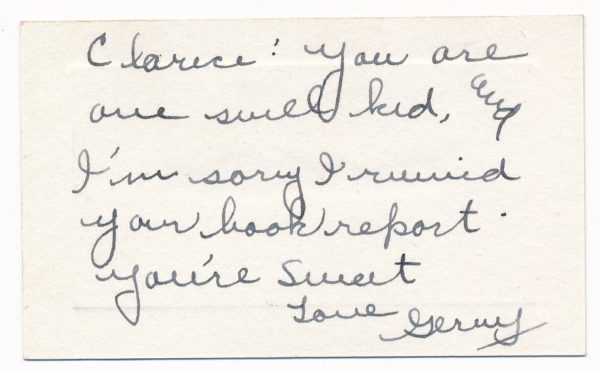 Clarice: you are
one swell kid, and
I'm sorry I ruined
your book report.
you're Sweet
Love Gerry